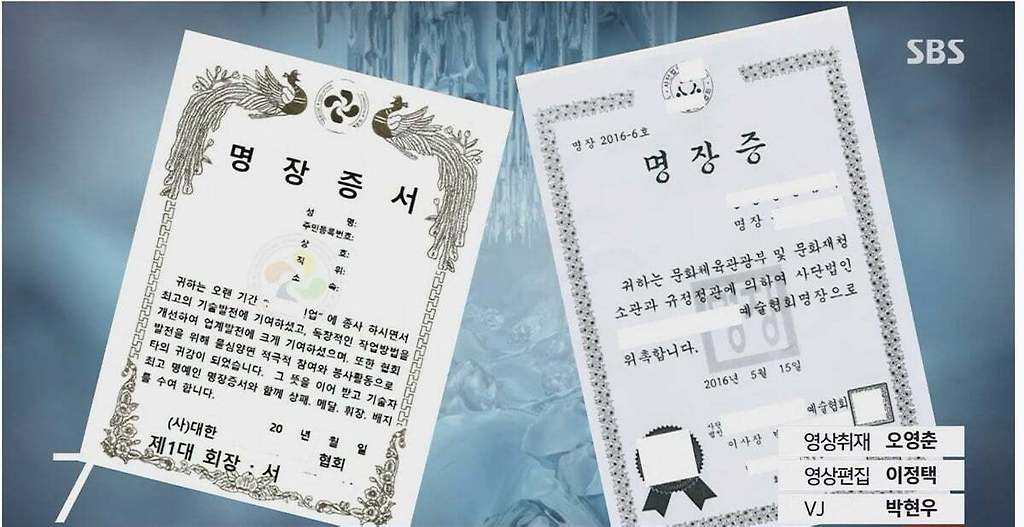 SBS
명장증서
성 명:
주민등록번호:
상 호:
직 위:
소 속:
귀하는 오랜 기간 업" 에 종사 하시면서
최고의 기술발전에 기여하셨고, 독창적인 작업방법을
개선하여 업계발전에 크게 기여하셨으며, 또한 협회
발전을 위해 물심양면 적극적 참여와 봉사활동으로
타의 귀감이 되었습니다. 그 뜻을 이어 받고 기술자
최고 명예인 명장증서와 함께 상패, 메달, 휘장, 배지
를 수여 합니다.
20 년 월 일
(사)대한 협회
제1대 회장 : 서
명장 2016-6호
명장증
명장 :
귀하는 문화체육관광부 및 문화재청
소관과 규정정관에 의하여 사단법인
예술협회명장으로
위촉합니다.
명장
2016년 5월 15일
사단
법인
예술협회
이사장
영상취재 오영춘
영상편집 이정택
VJ 박현우